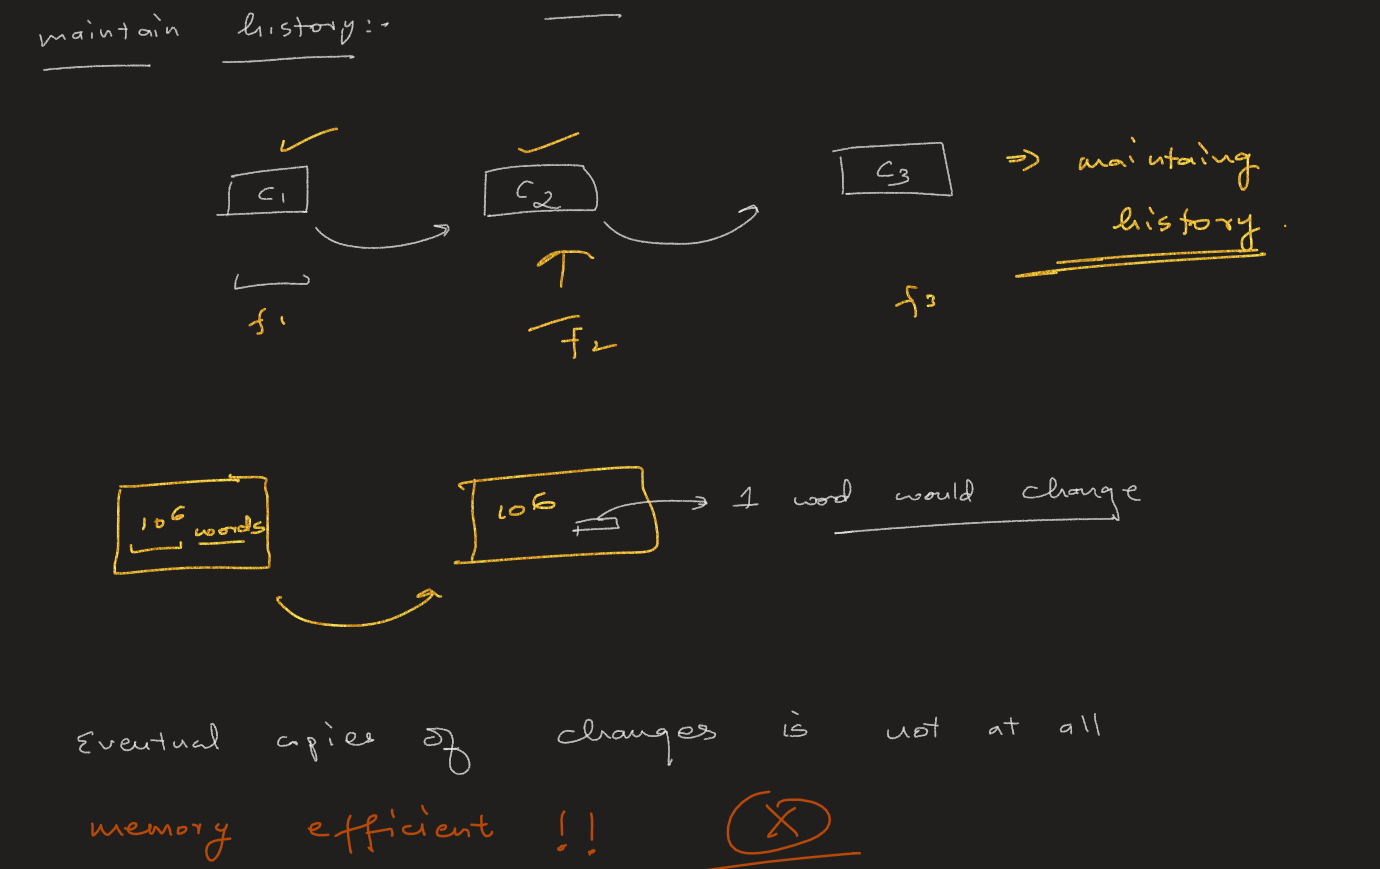 maintain history:-
C1 C2 C3 => maintaing
history.
f1 f2 f3
10^6 words 10^6 1 word would change
Eventual copies of changes is not at all
memory efficient !! X